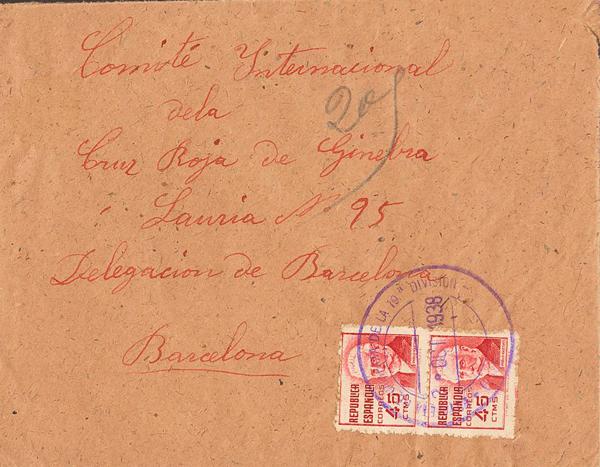 Comité Internacional
dela
Cruz Roja de Ginebra
Lauria Nº 95
Delegacion de Barcelona
Barcelona
20
DE LA 19ª DIVISION
1938
REPUBLICA
ESPAÑOLA
CORREOS
45
CTMS
REPUBLICA
ESPAÑOLA
CORREOS
45
CTMS